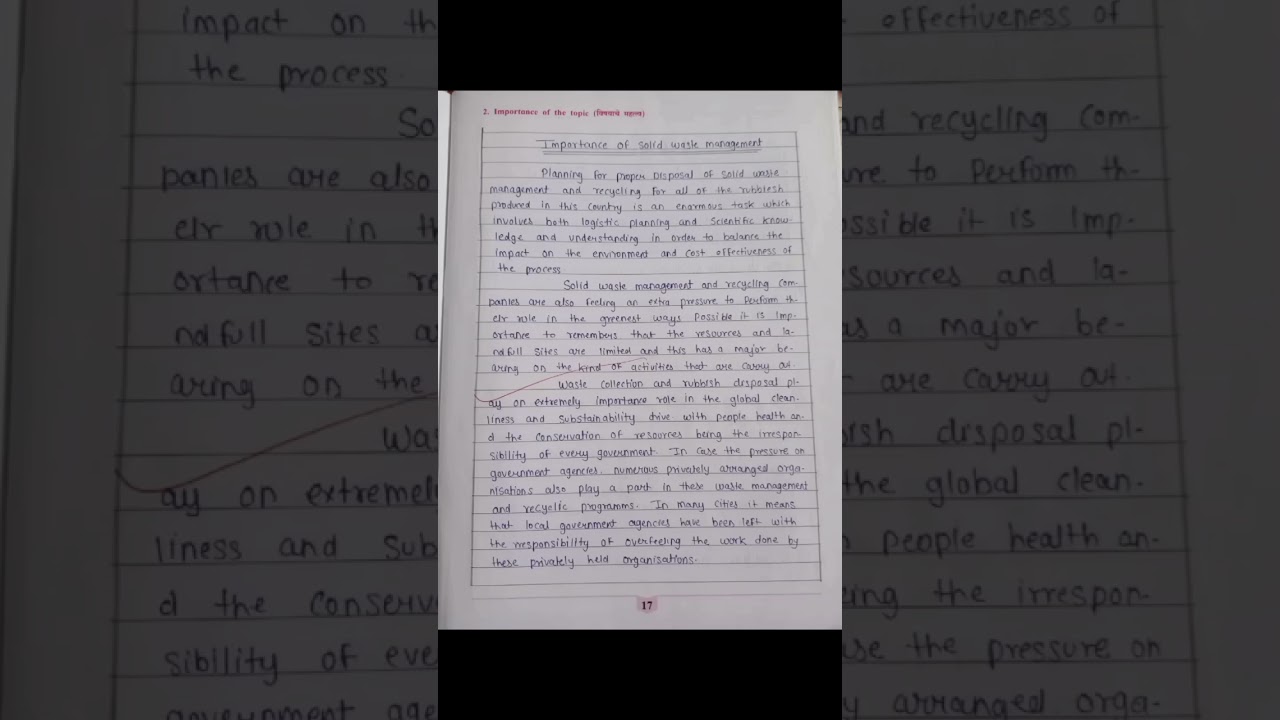 2. Importance of the topic (विषयाचे महत्त्व)
Importance of solid waste management
Planning for proper Disposal of solid waste
management and recycling for all of the rubbiesh
produced in this country is an enarmous task which
involves both logistic planning and scientific know-
ledge and understanding in order to balance the
impact on the environment and cost effectiveness of
the process
Solid waste management and recycling com-
panies are also feeling an extra pressure to Perform th-
eir role in the greenest ways Possible it is Imp-
ortance to remembers that the resources and la-
ndfull sites are limited and this has a major be-
aring on the kind of activities that are carry out.
Waste collection and rubbish disposal pl-
ay on extremely importance role in the global clean-
liness and substainability drive with people health an-
d the conservation of resources being the irrespon-
sibility of every government. In case the pressure on
government agencies. numerous privately arranged orga-
nisations also play a part in these waste management
and recyclic programms. In many cities it means
that local government agencies have been left with
the responsibility of overfeeling the work done by
these privately held organisations.
17